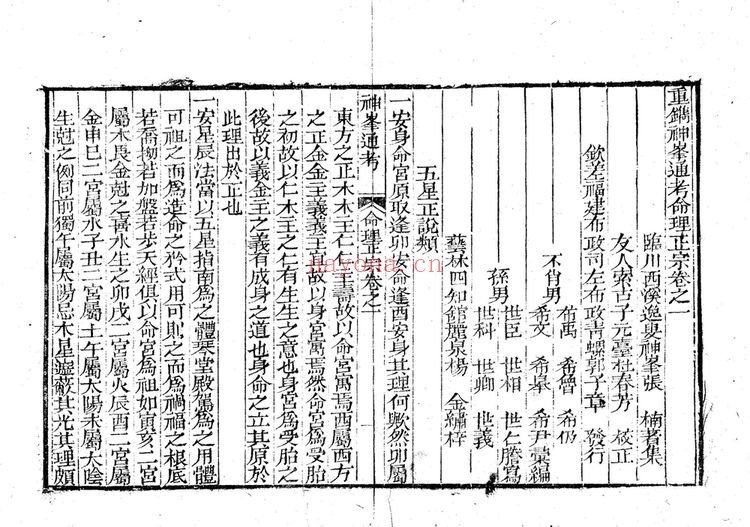 重鐫神峯通考命理正宗卷之一
臨川西溪逸叟神峯張 楠著集
友人索古子元臺杜春芳 校正
欽差福建布政司左布政青螺郭子章 發行
布禹 希曾 希仍
不肖男 希文 希皋 希尹彙編
孫男 世臣 世相 世仁謄寫
世科 世卿 世義
藝林四知館麗泉楊 金繡梓
五星正說類
一安身命宮原取逢卯安命逢酉安身其理何歟然卯屬
神峯通考 命理正宗卷之一
東方之正木木主仁仁主壽故以命宮寓焉酉屬西方
之正金金主義義主故以身宮寓焉然命宮爲受胎
之初故以仁木主之仁有生生之意也身宮爲受胎之
後故以義金主之義有成身之道也身命之立其原於
此理出於正也
一安星辰法當以五星指南爲之體琴堂殿駕爲之用體
可祖之而爲造命之矜式用可則之而爲禍福之根底
若喬拗若加盤若步天經俱以命宮爲祖如寅亥二宮
屬木畏金尅之喜水生之卯戌二宮屬火辰酉二宮屬
金申巳二宮屬水子丑二宮屬土午屬太陽未屬太陰
生尅之例同前獨午屬太陽忌木星遮蔽其光其理頗
nayona.cn